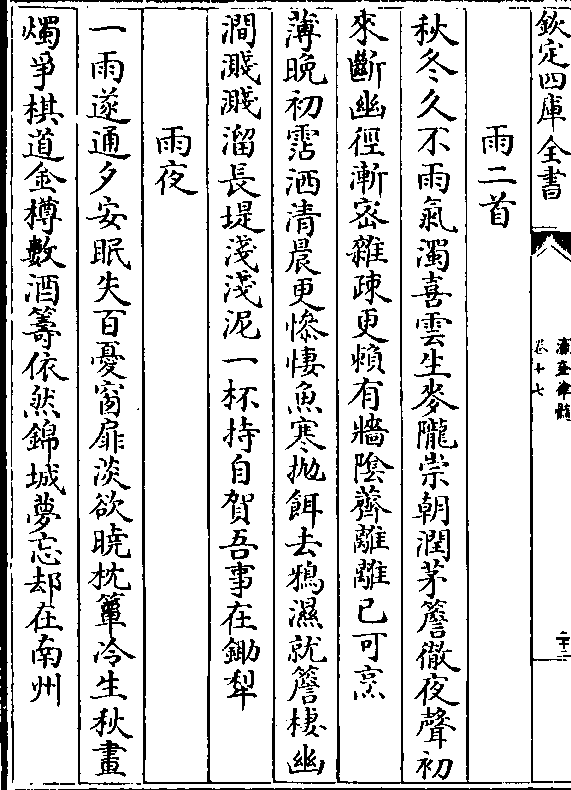 欽定四庫全書
瀛奎律髓
卷十七
二十三
雨二首
秋冬久不雨氣濁喜雲生麥隴崇朝潤茅簷徹夜聲初
來斷幽徑漸密雜疎更頼有牆陰薺離離已可烹
薄晚初霑洒清晨更慘悽魚寒抛餌去鴉濕就簷棲幽
澗濺濺溜長堤淺淺泥一杯持自賀吾事在鋤犁
雨夜
一雨遂通夕安眠失百憂窗扉淡欲曉枕簟冷生秋畫
燭爭棋道金樽數酒籌依然錦城夢忘却在南州